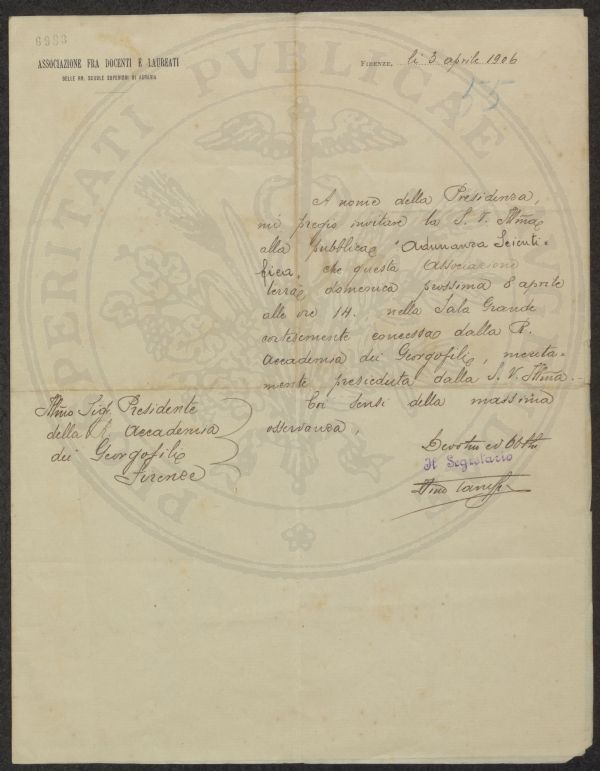 6983
ASSOCIAZIONE FRA DOCENTI E LAUREATI
DELLE RR. SCUOLE SUPERIORI DI AGRARIA
FIRENZE, li 3 aprile 1906
55
A nome della Presidenza,
mi pregio invitare la S. V. Illma
alla pubblica "Adunanza Scienti-
fica" che questa Associazione
terrà domenica prossima 8 aprile
alle ore 14. nella Sala Grande
cortesemente concessa dalla R.
Accademia dei Georgofili, merita-
mente presieduta dalla S. V. Illma.
Coi sensi della massima
osservanza,
Illmo Sig. Presidente
della R. Accademia
dei Georgofili
Firenze
Devotmo ed Obblmo
Il Segretario
PROSPERITATI PUBLICAE